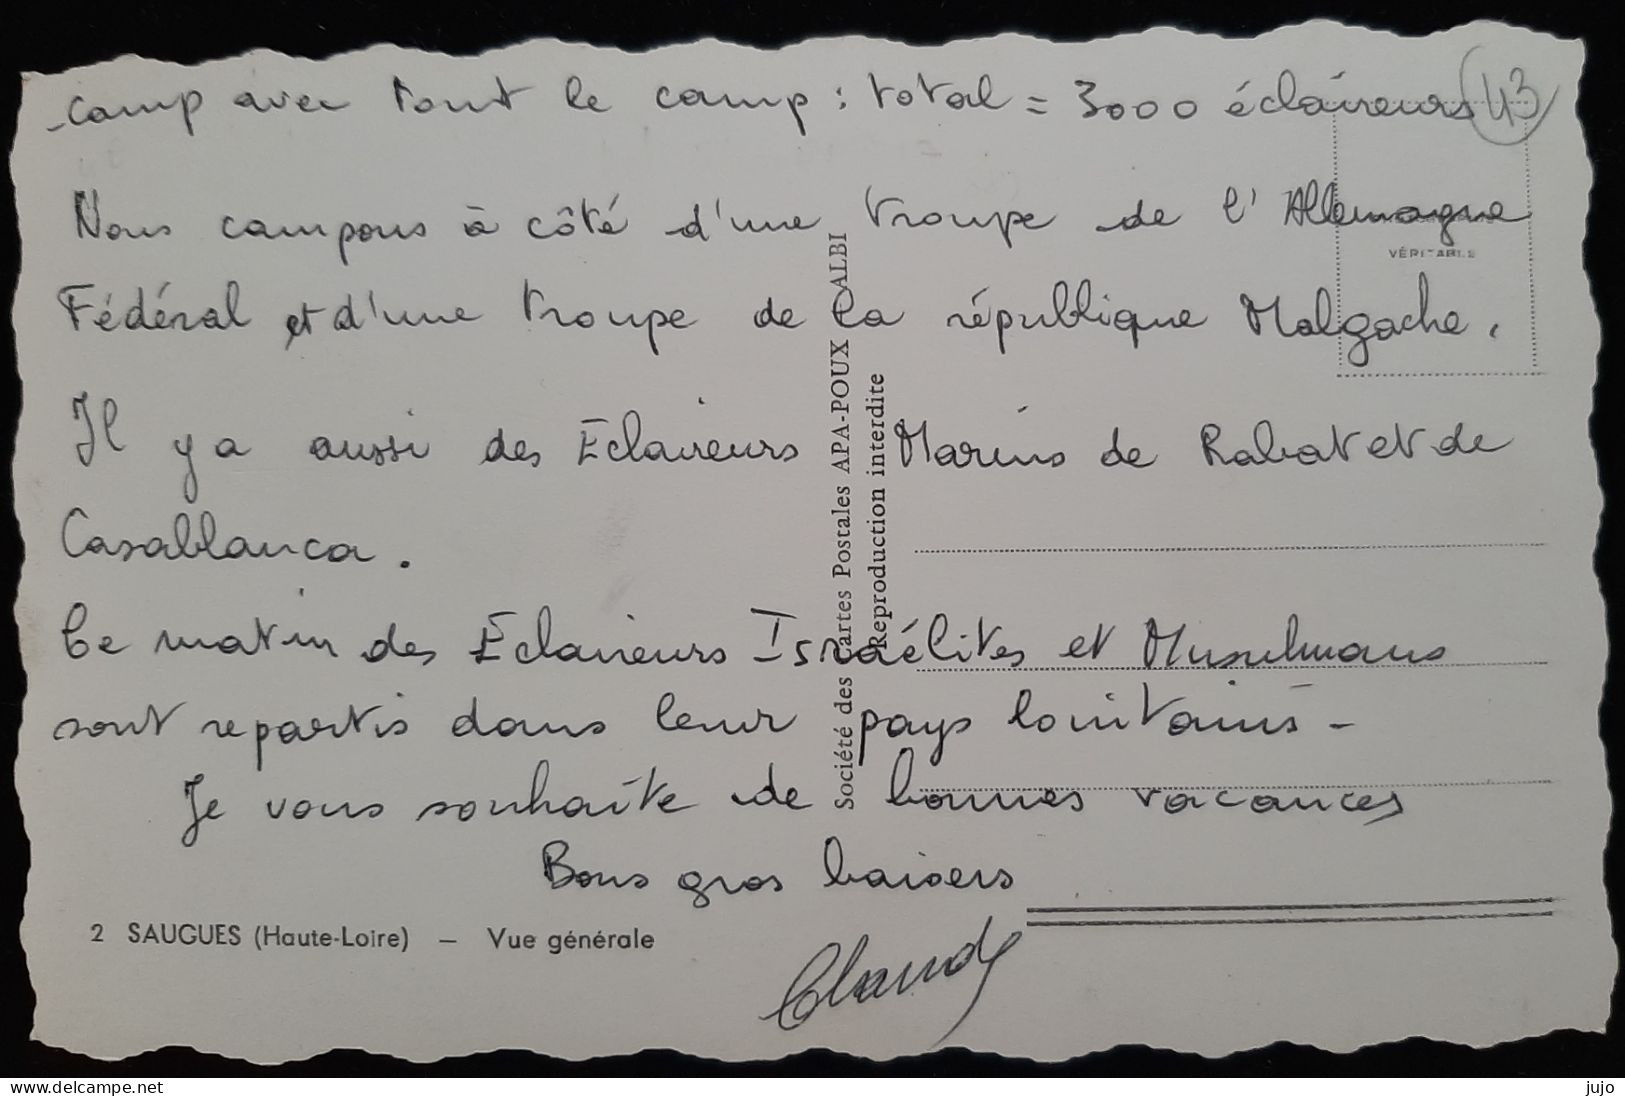 -camp avec tout le camp : total = 3000 éclaireurs
43
Nous campons à côté d'une troupe de l'Allemagne
VÉRITABLE
Fédéral et d'une troupe de la république Malgache.
Il y a aussi des Eclaireurs Marins de Rabat et de
Casablanca.
Ce matin des Éclaireurs Israélites et Musulmans
sont repartis dans leur pays lointains -
Je vous souhaite de bonnes vacances
Bons gros baisers
Claude
Société des Cartes Postales APA-POUX ALBI
Reproduction interdite
2 SAUGUES (Haute-Loire) – Vue générale
www.delcampe.net
jujo